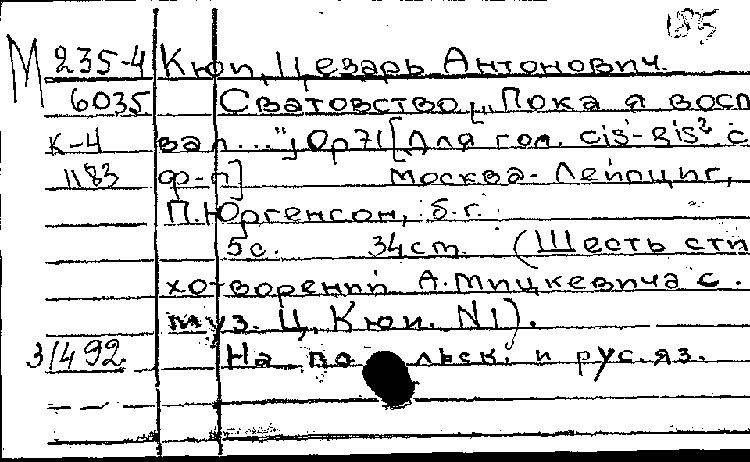 185
М 235-4 Кюи, Цезарь Антонович.
6035 Сватовство „Пока я восп
К-4 вал..."; Op 71 [Для гол. cis-gis² с
1183 ф-п] Москва-Лейпциг,
П. Юргенсон, б.г.
5с. 34 cm. (Шесть сти
хотворений А. Мицкевича с
муз. Ц. Кюи. N1).
31492. На польск. и рус. яз.